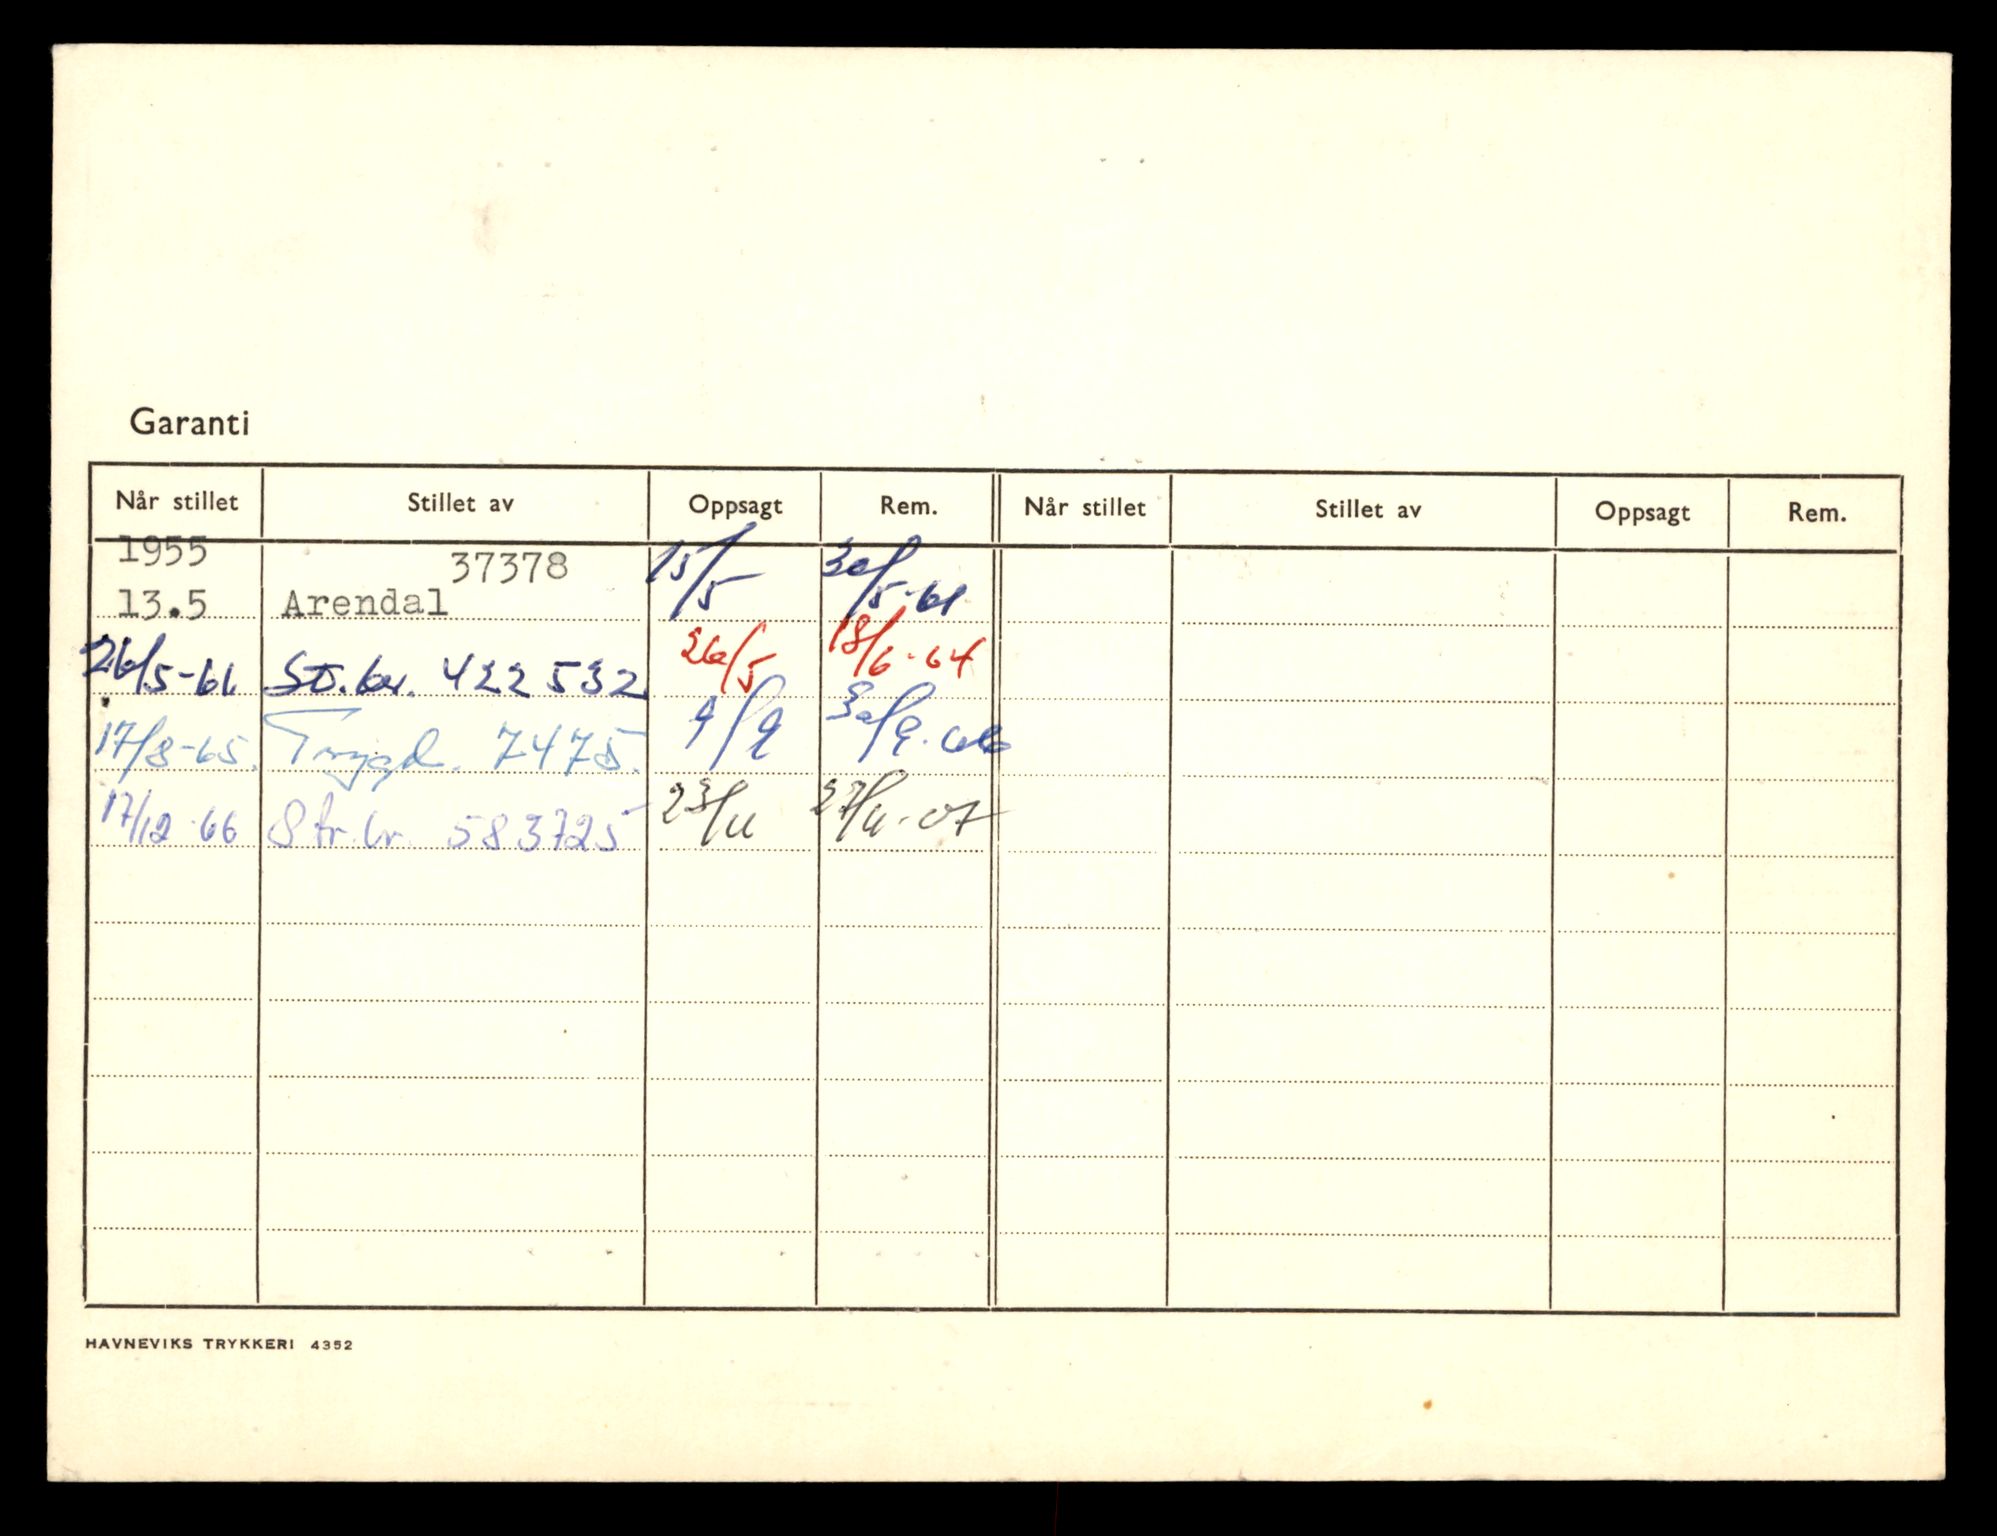 Garanti
Når stillet Stillet av Oppsagt Rem. Når stillet Stillet av Oppsagt Rem.
1955 37378 15/5 30/5-61
13.5 Arendal
26/5-61. St.br. 422532 26/5 18/6-64
17/8-65. Trygd. 7475. 9/9 30/9.66
17/12-66 Str.br. 583725 23/11 27/11-67
HAVNEVIKS TRYKKERI 4352